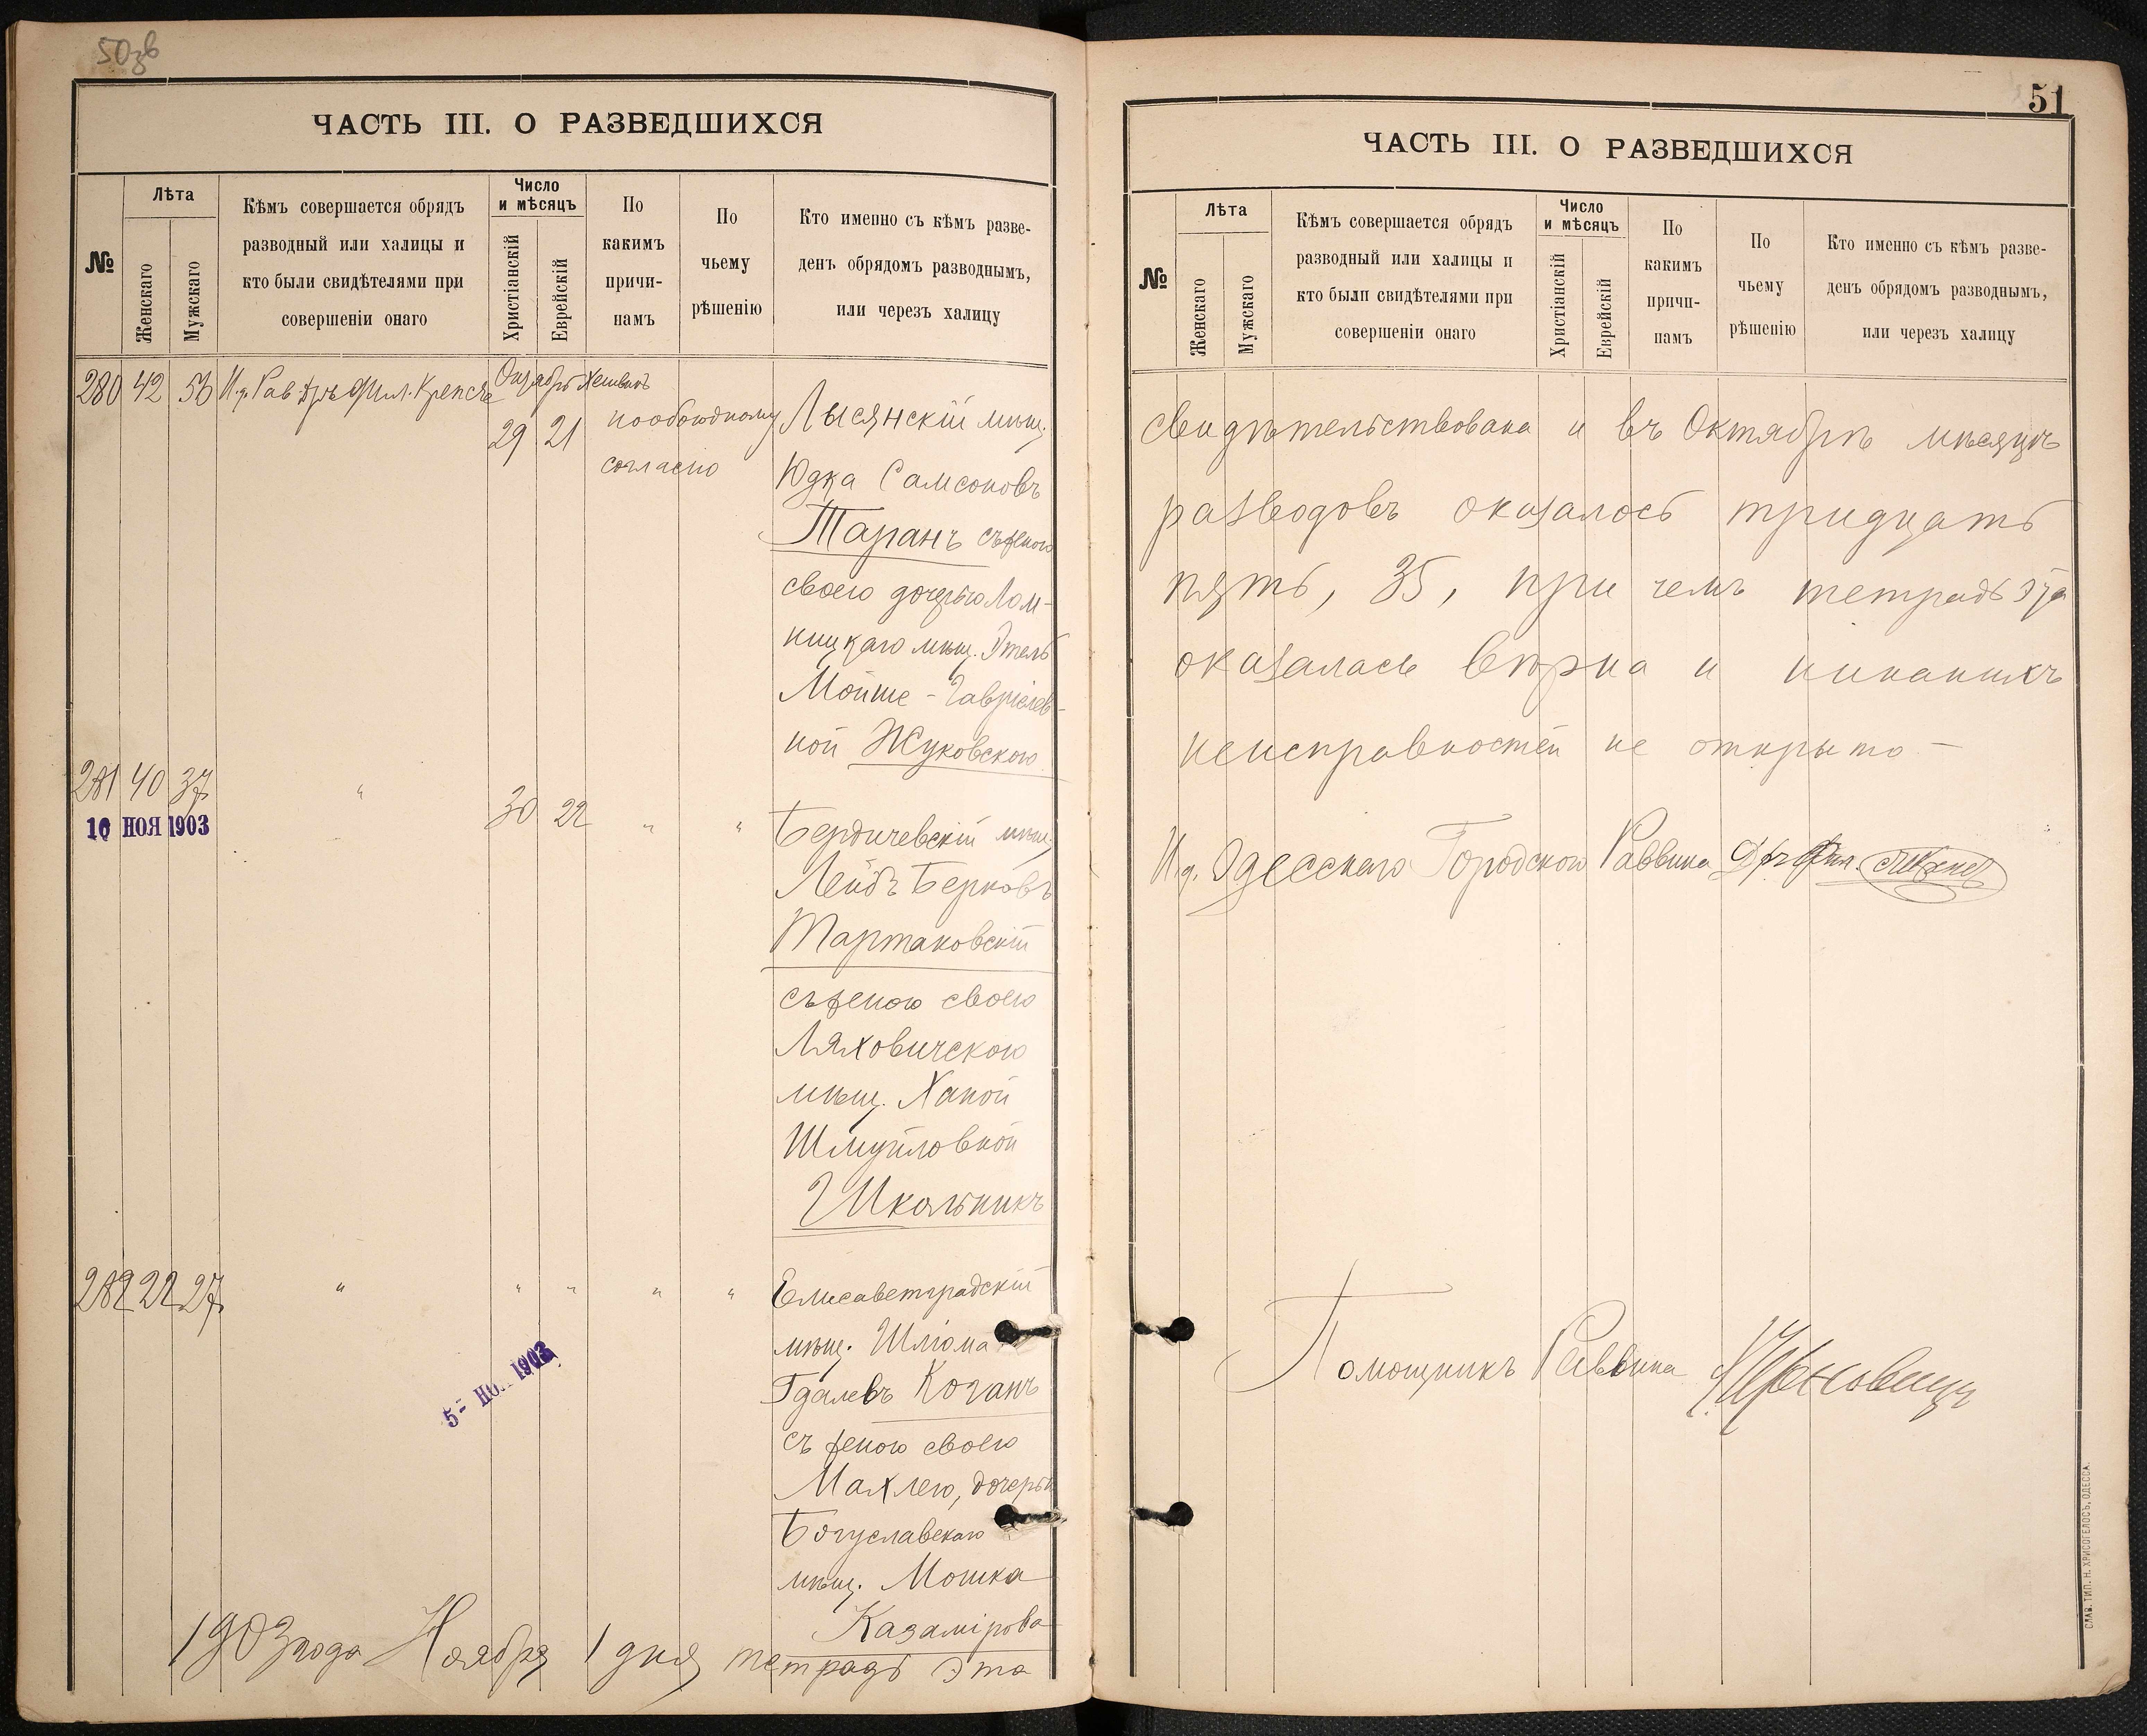 50зв
ЧАСТЬ III. О РАЗВЕДШИХСЯ
№
Лѣта
Женскаго
Мужскаго
Кѣмъ совершается обрядъ
разводный или халицы и
кто были свидѣтелями при
совершеніи онаго
Число
и мѣсяцъ
Христіанскій
Еврейскій
По
какимъ
причи-
намъ
По
чьему
рѣшенію
Кто именно съ кѣмъ разве-
денъ обрядомъ разводнымъ,
или черезъ халицу
280 42 53 И.д. Рав. Дръ Фил. Крепсъ
Октября Хешвонъ
29 21
пообоюдному
согласію
Лысянскій мѣщ.
Юдка Самсоновъ
Таранъ съ женою
своею дочерью Лом-
ницкаго мѣщ. Этель
Мойше-Гавріелев-
ной Жуковскою
281 40 37 " 30 22 " "
10 НОЯ 1903
Бердичевскій мѣщ.
Лейбъ Берковъ
Тартаковскій
съ женою своею
Ляховичскою
мѣщ. Ханой
Шмуйловной
Школьникъ
282 22 27 " " " " "
5- НО 1903
Елисаветградскій
мѣщ. Шліома
Гдалевъ Коганъ
съ женою своею
Махлею, дочерью
Богуславскаго
мѣщ. Мошка
Казамірова
1903 года Ноября 1 дня тетрадь эта
51
ЧАСТЬ III. О РАЗВЕДШИХСЯ
№
Лѣта
Женскаго
Мужскаго
Кѣмъ совершается обрядъ
разводный или халицы и
кто были свидѣтелями при
совершеніи онаго
Число
и мѣсяцъ
Христіанскій
Еврейскій
По
какимъ
причи-
намъ
По
чьему
рѣшенію
Кто именно съ кѣмъ разве-
денъ обрядомъ разводнымъ,
или черезъ халицу
свидѣтельствована и въ Октябрѣ мѣсяцѣ
разводовъ оказалось тридцать
пять, 35, при чемъ тетрадь эта
оказалась вѣрна и никакихъ
неисправностей не открыто –
И.д. Одесскаго Городского Раввина Дръ Фил.
Помощникъ Раввина
СЛАВ. ТИП. Н. ХРИСОГЕЛОСЪ, ОДЕССА.